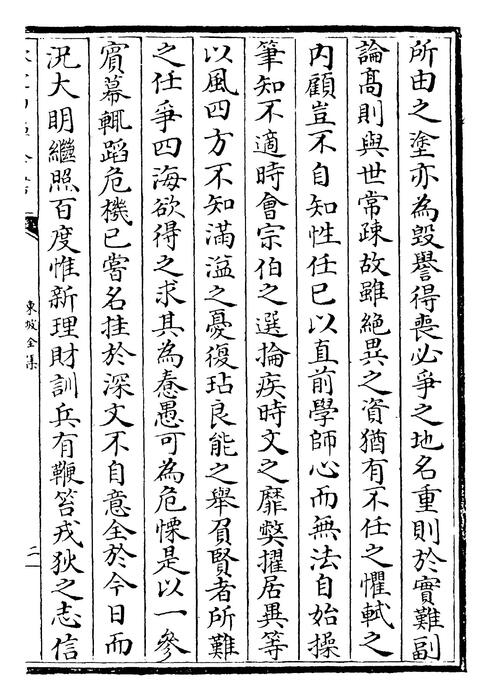 所由之塗亦為毀譽得喪必爭之地名重則於實難副
論髙則與世常疎故雖絶異之資猶有不任之懼軾之
内顧豈不自知性任已以直前學師心而無法自始操
筆知不適時會宗伯之選掄疾時文之靡弊擢居異等
以風四方不知滿溢之憂復玷良能之舉負賢者所難
之任爭四海欲得之求其為惷愚可為危慄是以一參
賔幕輒蹈危機已嘗名挂於深文不自意全於今日而
况大明繼照百度惟新理財訓兵有鞭笞戎狄之志信
東坡全集
二